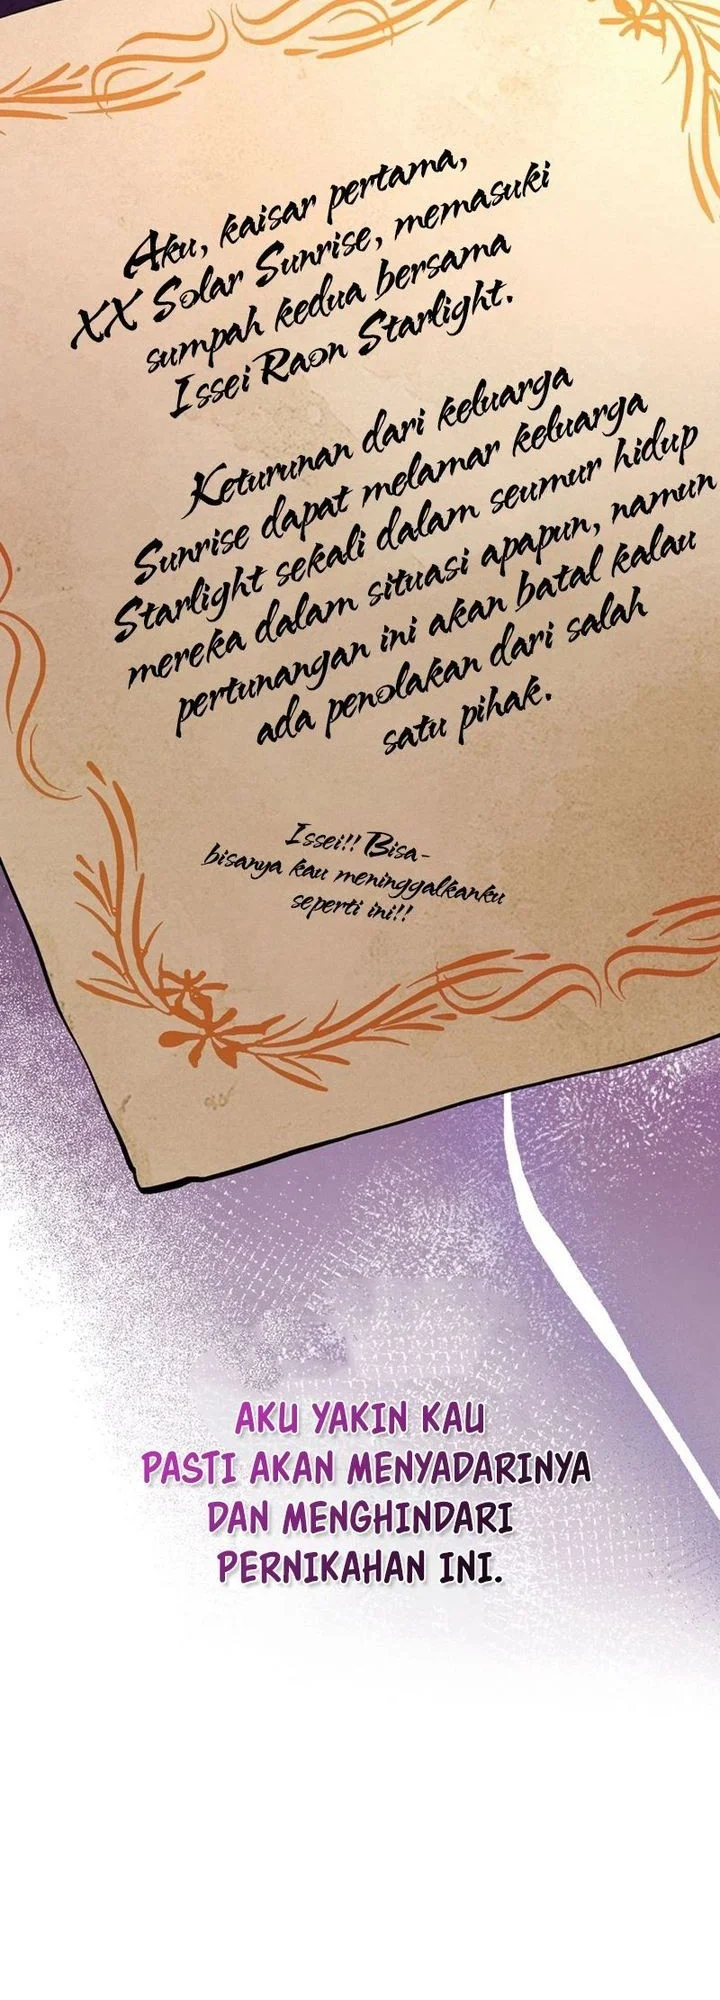 Aku, kaisar pertama,
XX Solar Sunrise, memasuki
sumpah kedua bersama
Issei Raon Starlight.
Keturunan dari keluarga
Sunrise dapat melamar keluarga
Starlight sekali dalam seumur hidup
mereka dalam situasi apapun, namun
pertunangan ini akan batal kalau
ada penolakan dari salah
satu pihak.
Issei!! Bisa-
bisanya kau meninggalkanku
seperti ini!!
AKU YAKIN KAU
PASTI AKAN MENYADARINYA
DAN MENGHINDARI
PERNIKAHAN INI.